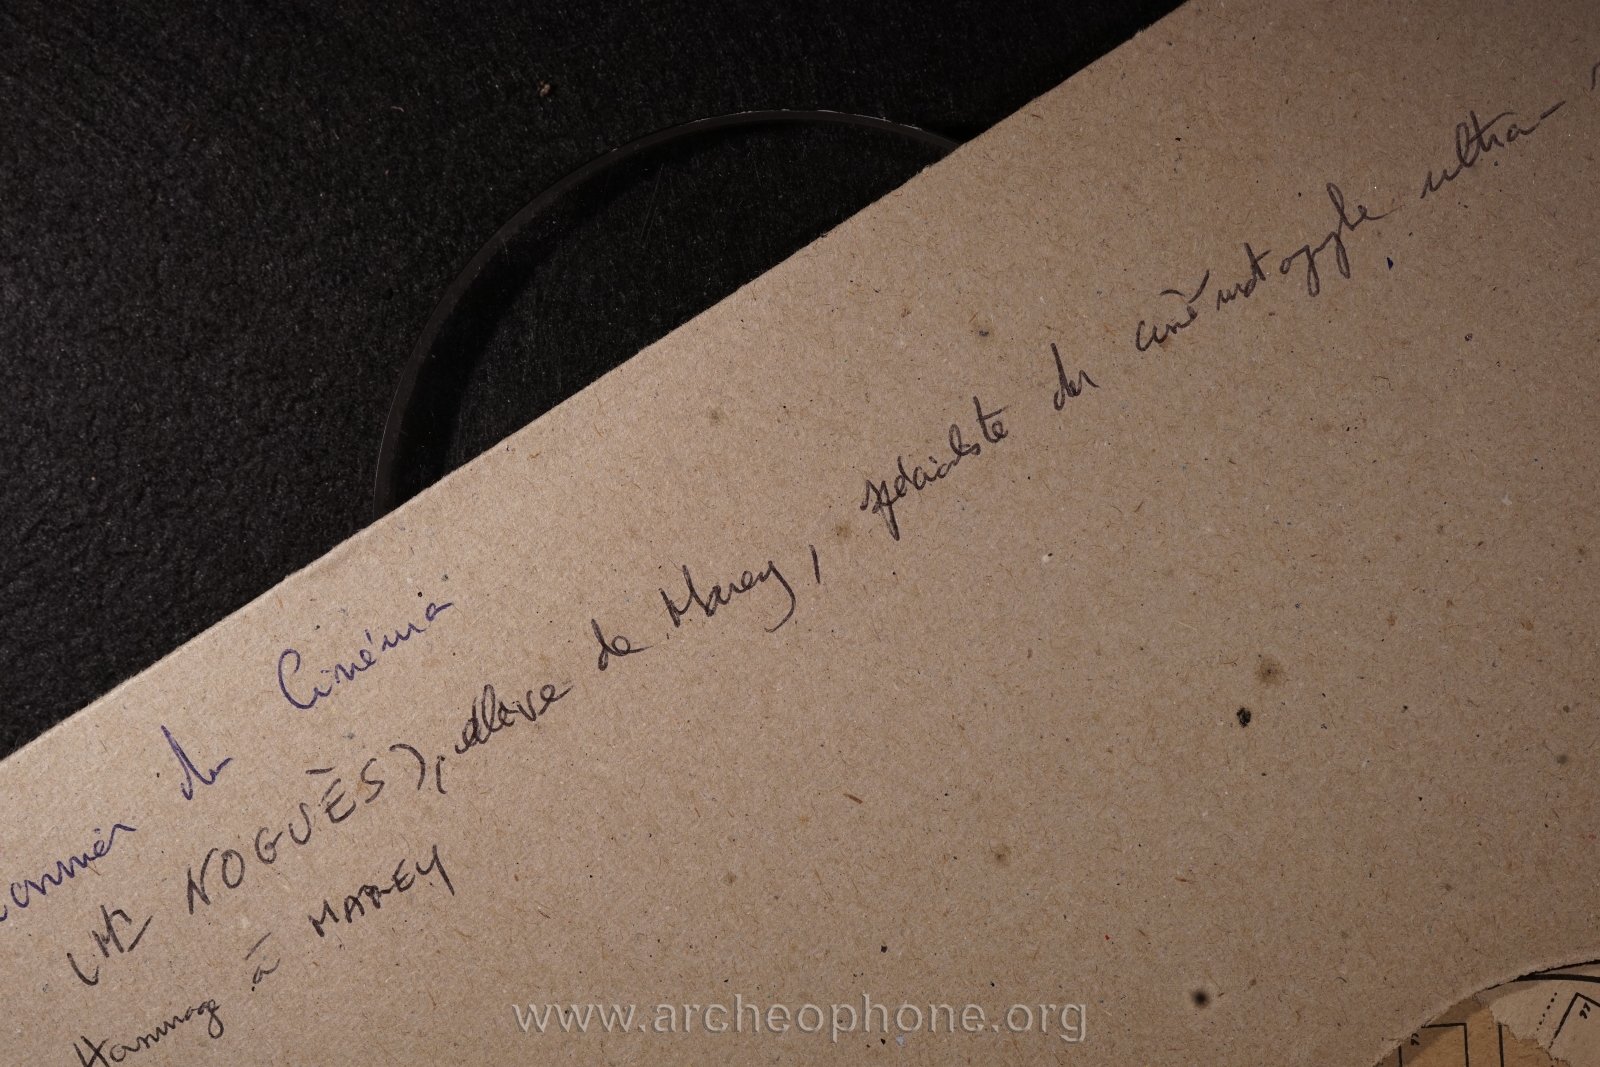 du Cinéma
(Mr NOGUÈS), élève de Marey, spécialiste du cinématographe ultra-
Hommage à MAREY
www.archeophone.org